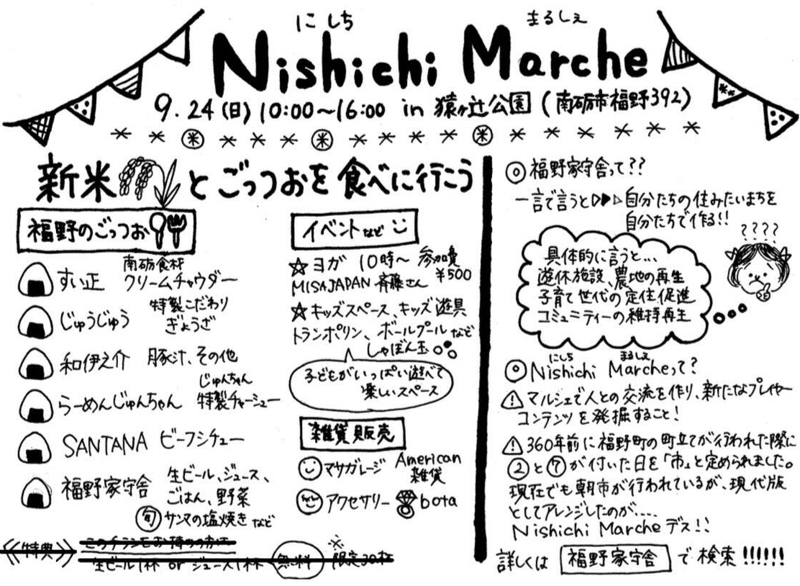 にしち まるしぇ
Nishichi Marche
9.24(日)10:00〜16:00 in 猿ヶ辻公園(南砺市福野392)
新米とごっつおを食べに行こう
福野のごっつお
すい正 南砺食材 クリームチャウダー
じゅうじゅう 特製こだわり ぎょうざ
和伊之介 豚汁、その他
らーめんじゅんちゃん じゅんちゃん 特製チャーシュー
SANTANA ビーフシチュー
福野家守舎 生ビール、ジュース、
ごはん、野菜
旬 サンマの塩焼き など
特典 このチラシをお持ちの方に
生ビール1杯 or ジュース1杯 無料 ※限定30杯
イベントなど
☆ヨガ 10時〜 参加費
MISAJAPAN 斉藤さん ¥500
☆キッズスペース、キッズ遊具
トランポリン、ボールプールなど
しゃぼん玉
子どもがいっぱい遊べて
楽しいスペース
雑貨販売
マサガレージ American
雑貨
アクセサリー bota
◎福野家守舎って??
一言で言うと▷▶▷自分たちの住みたいまちを
自分たちで作る!!
????
具体的に言うと…
遊休施設、農地の再生
子育て世代の定住促進
コミュニティーの維持再生
にしち まるしぇ
◎Nishichi Marcheって?
⚠マルシェで人との交流を作り、新たなプレイヤー
コンテンツを発掘すること!
⚠360年前に福野町の町立てが行われた際に
②と⑦が付いた日を「市」と定められました。
現在でも朝市が行われているが、現代版
としてアレンジしたのが….
Nishichi Marcheデス!!
詳しくは 福野家守舎 で検索!!!!!!